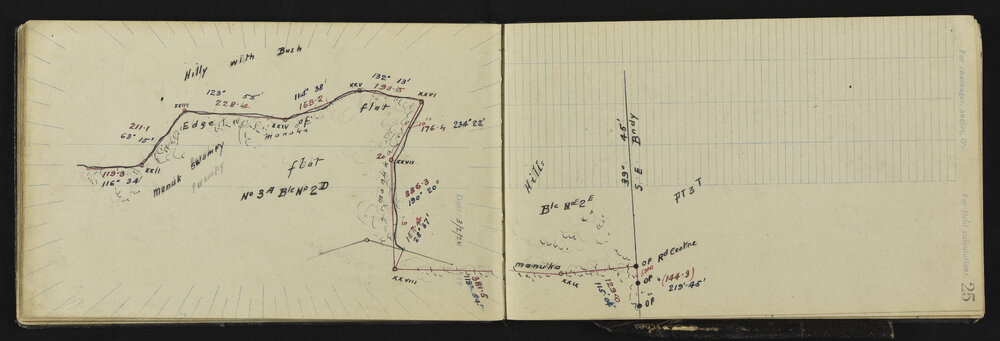 Hilly with Bush
XXIII
123° 55'
228.4
114° 38'
163.2
XXV
132° 13'
191.5
XXVI
211.1
63° 15'
Edge
XXIV
of
manuka
flat
176.4
234° 22'
119.3
116° 34'
XXII
manuk swampy
swampy
flat
No 3A Blc No 2D
20
XXVII
manuka
386.3
190° 20'
10
157.2
28° 37'
Date 3/2/24
XXVIII
381.5
25
For chainages, angles, &c.
For field calculations.
Hills
Blc No 2E
39° 45'
S.E Bndy
PT 3 T
manuka
XXIX
129.00
OP Rd Centre
OP
(144.9)
219° 45'
OP